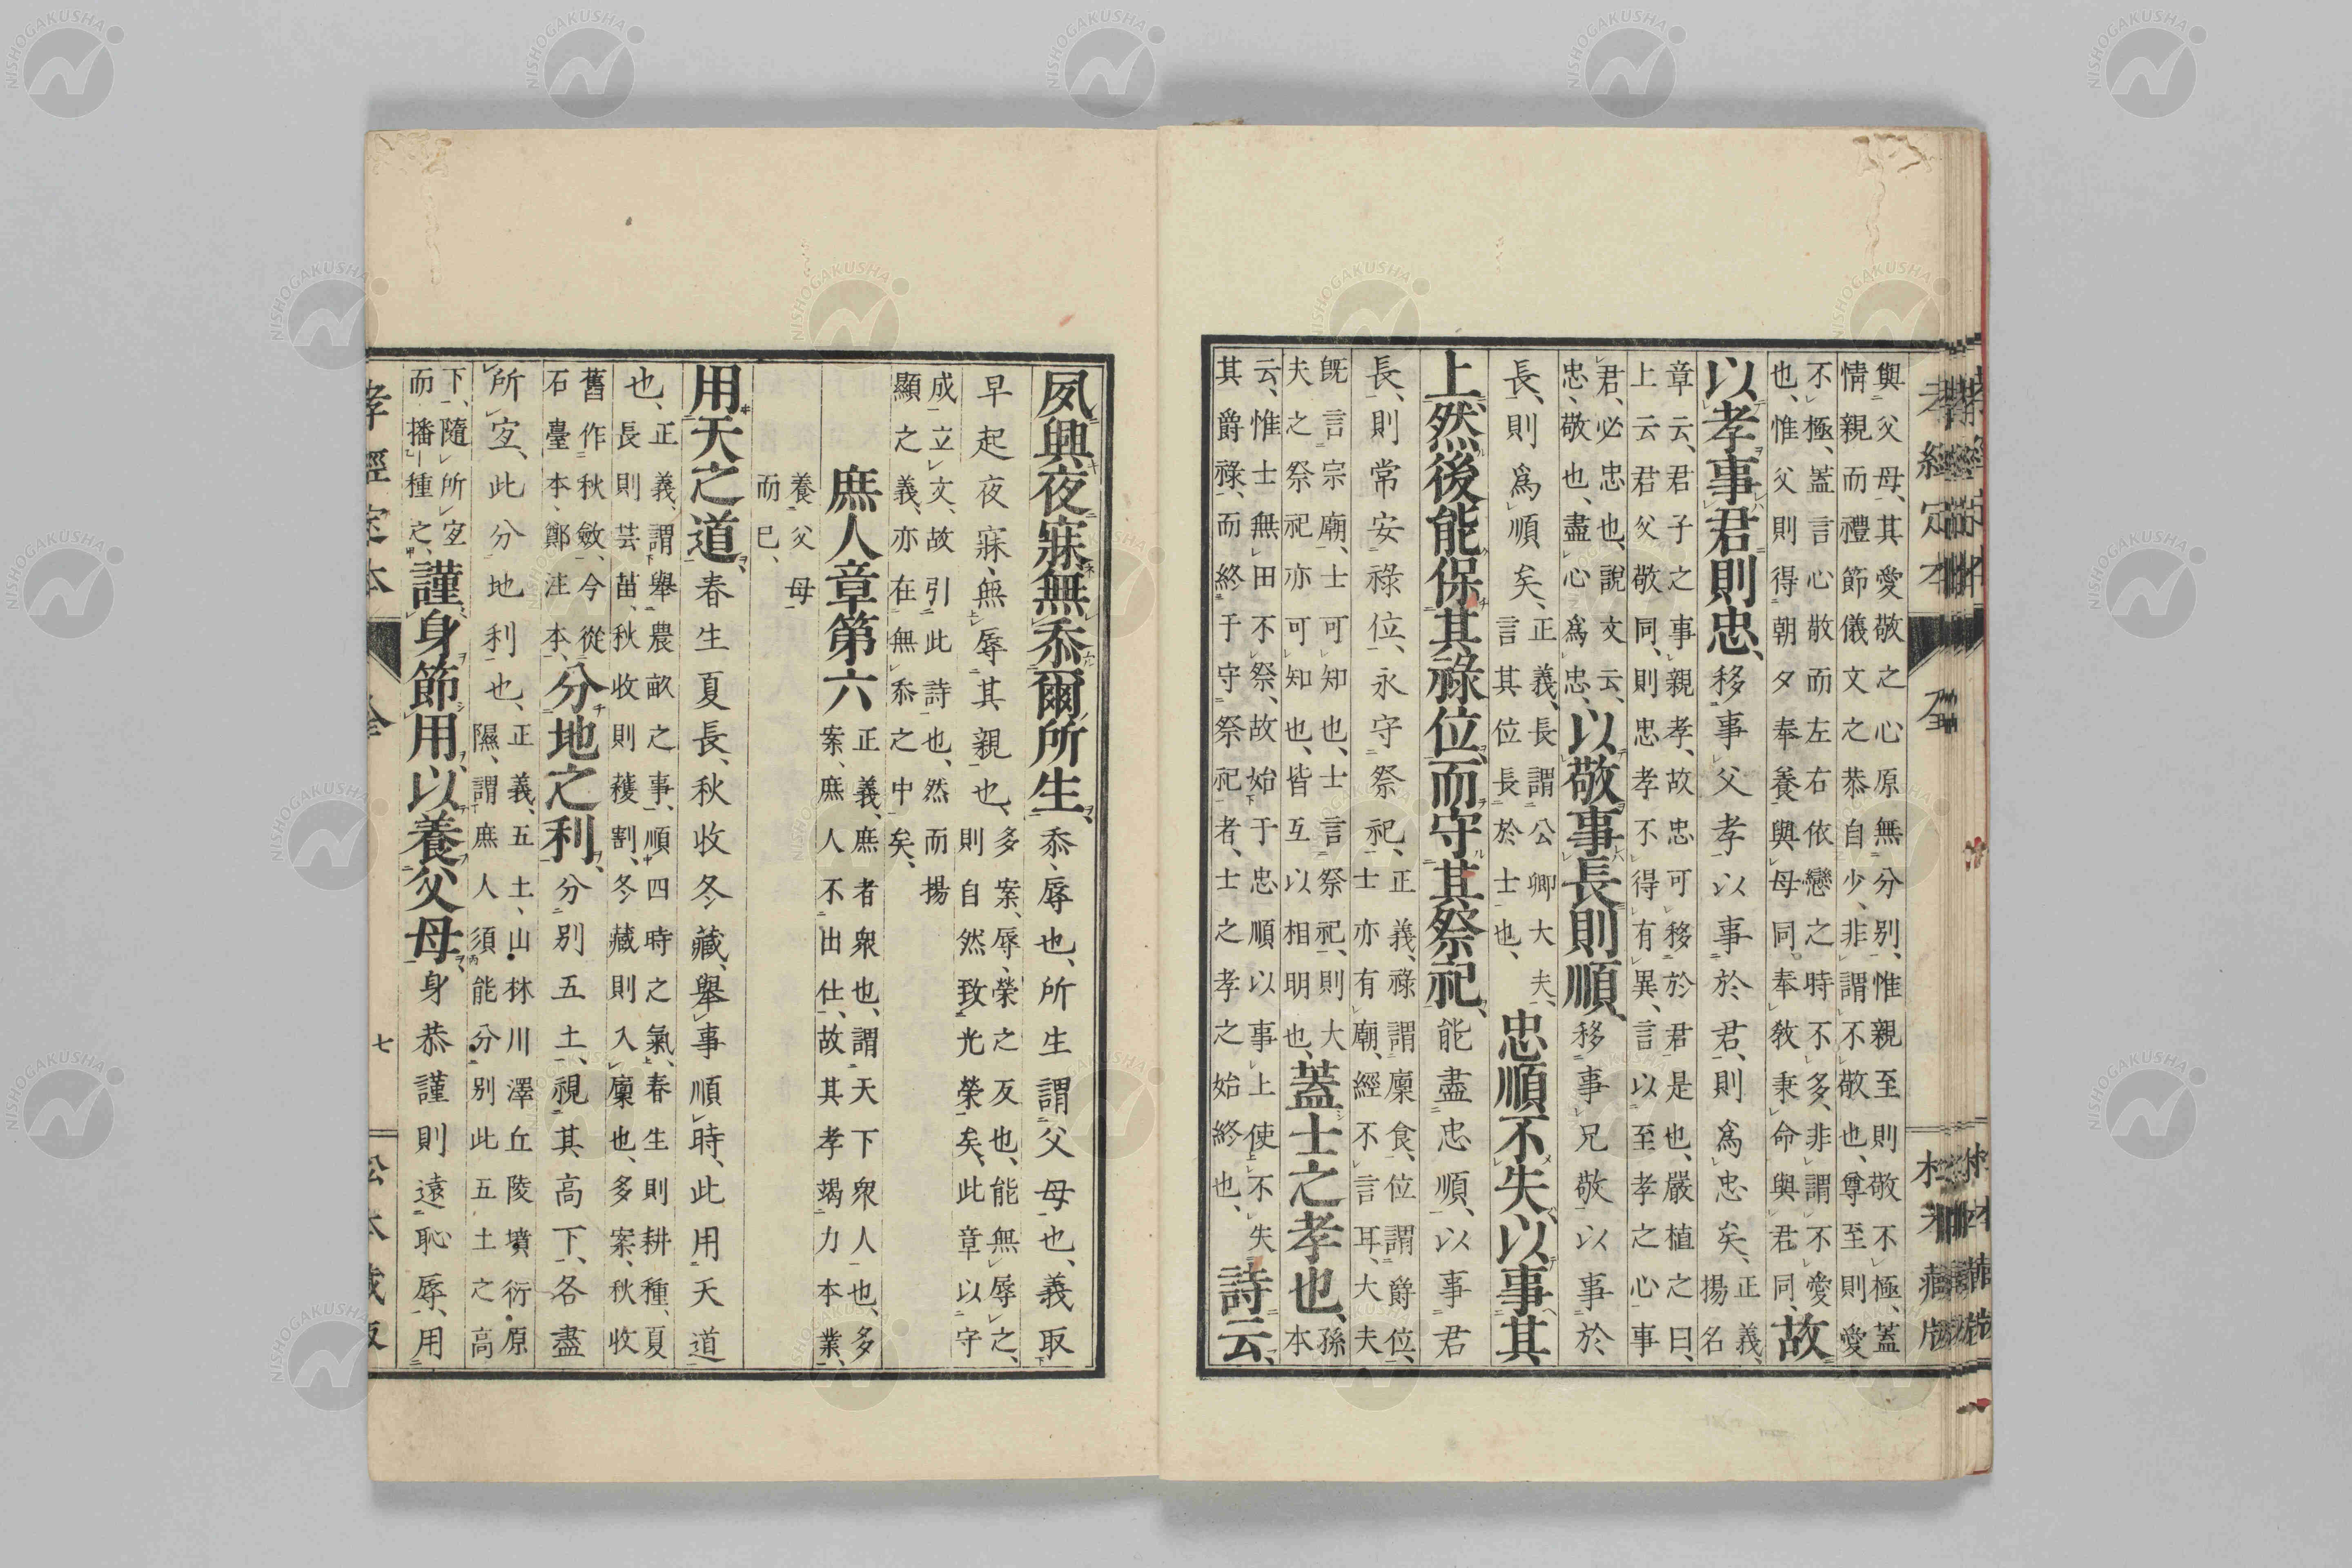 與父母、其愛敬之心原無分別、惟親至則敬不極、蓋
情親而禮節儀文之恭自少、非謂不敬也、尊至則愛
不極、蓋言心敬而左右依戀之時不多、非謂不愛
也、惟父則得朝夕奉養、與母同、奉敎秉命與君同、故
以孝事君則忠、移事父孝以事於君、則爲忠矣、正義、
揚名
章云、君子之事親孝、故忠可移於君是也、嚴植之曰、
上云君父敬同、則忠孝不得有異、言以至孝之心事
君、必忠也、說文云、
忠、敬也、盡心爲忠、以敬事長則順、移事兄敬以事於
長、則爲順矣、正義、長謂公卿大夫、
言其位長於士也、忠順不失、以事其
上、然後能保其祿位、而守其祭祀、能盡忠順、以事君
長、則常安祿位、永守祭祀、正義、祿謂廩食、位謂爵位、
士亦有廟、經不言耳、大夫
旣言宗廟、士可知也、士言祭祀、則大
夫之祭祀亦可知也、皆互以相明也、蓋士之孝也、孫
本
云、惟士無田不祭、故始于忠順以事上使不失
其爵祿、而終于守祭祀者、士之孝之始終也、詩云、
夙興夜寐、無忝爾所生、忝、辱也、所生謂父母也、義取
早起夜寐、無辱其親也、多案、辱、榮之反也、能無辱之、
則自然致光榮矣、此章以守
成立文、故引此詩也、然而揚
顯之義、亦在無忝之中矣、
庶人章第六正義、庶者衆也、謂天下衆人也、多
案、庶人不出仕、故其孝竭力本業、
養父母
而已、
用天之道、春生夏長、秋收冬藏、舉事順時、此用天道
也、正義、謂舉農畝之事、順四時之氣、春生則耕種、夏
長則芸苗、秋收則穫割、冬藏則入廩也、多案、秋收
舊作秋斂、今從
石臺本、鄭注本、分地之利、分別五土、視其高下、各盡
所宜、此分地利也、正義、五土、山林川澤丘陵墳衍原
隰、謂庶人須能分別此五土之高
下、隨所宜
而播種之、謹身節用、以養父母、身恭謹則遠恥辱、用
孝經定本
全
七
松本藏版